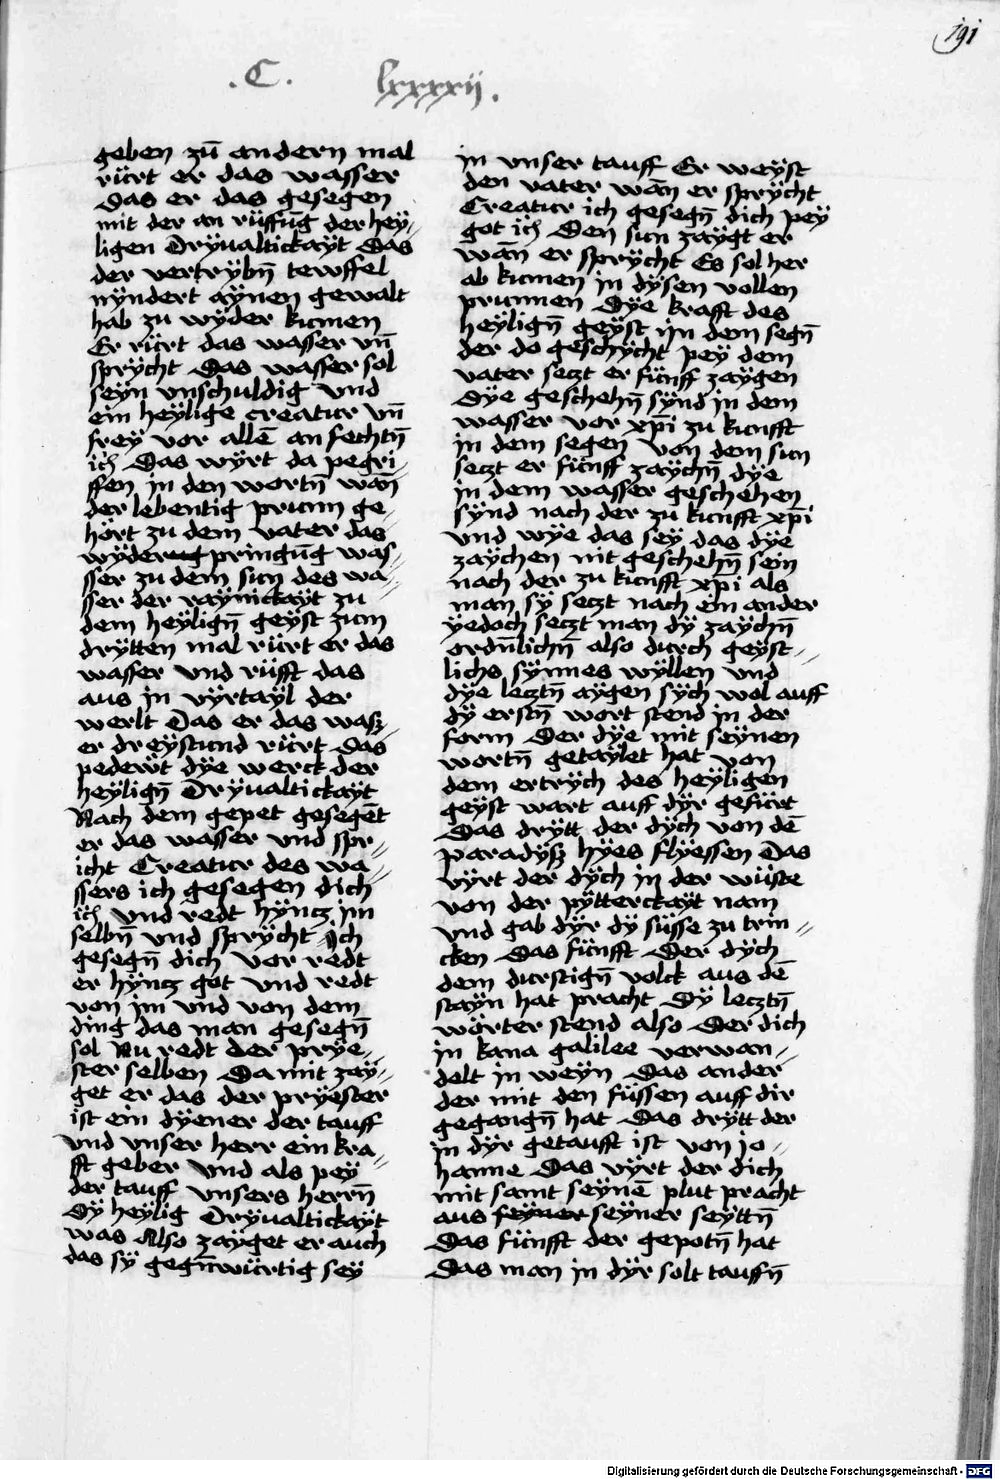 191
.C. lxxxxij.
geben zū andern mal
rürt er das wasser
Das er das gesegen
mit der an rüffūg der hey//
ligen Dryualtickaÿt Das
der vertrÿbn̄ tewffel
nÿndert aÿnen gewalt
hab zu wÿder kumen
Er rürt das wasser vn̄
sprÿcht Das wasser sol
seÿn vnschuldig vnd
ein heÿlige creatur vn̄
freÿ vor allē an fechtn̄
ich Das wÿrt da pegri//
ffen in den wortn̄ wān
der lebentig prunn ge//
hört zu dem vater das
wÿder pringūg was//
sser zu dem sun des wa//
sser der raÿnickaÿt zu
dem heÿlign̄ geÿst zum
drÿtten mal rürt er das
wasser vnd rüfft das
aus in vÿrtaÿl der
werlt Das er das wasz//
er dreÿstund rürt Das
pedewt dÿe werck der
heÿlign̄ Dryualtickaÿt
Nach dem gepet gesegēt
er das wasser vnd spr//
icht Creatur des wa//
ssers ich gesegen dich
ich vnd redt hÿntz im
selbn̄ vnd sprÿcht Ich
gesegn̄ dich vor redt
er hÿntz got vnd redt
von im vnd von dem
ding das man gesegn̄
sol Nu redt der prÿe//
ster selben Da mit zaÿ//
get er das der prÿester
ist ein dÿener der tauff
vnd vnser herr ein kra//
fft geber vnd als peÿ
der tauff vnsers herrn̄
Dÿ heÿlig Dryualtickaÿt
was Also zaÿget er auch
das sÿ gegn̄würtig seÿ
in vnser tauff Er weÿst
den vater wān er sprÿcht
Creatur ich gesegn̄ dich peÿ
got ich Den sun zaÿgt er
wān er sprÿcht Es sol her
ab kumen in dÿsen vollen
prunnen Dÿe krafft des
heÿlign̄ geÿst im dem segn̄
der do geschÿcht peÿ dem
vater setzt er fünff zaÿgen
Dÿe geschehn̄ sÿnd in dem
wasser vor xp̄i zu kunfft
in dem segen von dem sun
setzt er fünff zaÿchn̄ dÿe
in dem wasser geschehen
sÿnd nach der zu kunfft xp̄i
vnd wÿe das seÿ das dÿe
zaÿchen nit geschehn̄ sein
nach der zu kunfft xp̄i als
man sÿ setzt nach ein ander
ÿedoch setzt man dÿ zaÿchn̄
ordn̄lichn̄ also durch geÿst//
lichs sÿnnes wÿllen vnd
dÿe letztn̄ aÿgen sÿch wol auff
dÿ erstn̄ wort stend in der
form Der dÿe mit seÿnen
wortn̄ getaÿlet hat von
dem ertrÿch des heÿligen
geÿst wart auff dÿr gefürt
Das drÿtt der dÿch von dē
paradÿsz hÿes flÿessen Das
vÿrt der dÿch in der wüste
von der pÿtterckaÿt nam
vnd gab dÿr dÿ süsse zu trin//
cken Das fünfft Der dÿch
dem durstign̄ volck aus dē
staÿn hat pracht Dÿ letztn̄
wörter stend also Der dich
in kana galilee verwan//
delt in weÿn Das ander
der mit den füssen auff dir
gegangn̄ hat Das drÿtt der
in dÿr getaufft ist von jo//
hanne Das vÿrt der dich
mit samt seÿnē plut pracht
aus seÿner seÿner seÿttn̄
Das fünfft der gepotn̄ hat
Das man in dÿr solt tauffn̄
Digitalisierung gefördert durch die Deutsche Forschungsgemeinschaft - DFG